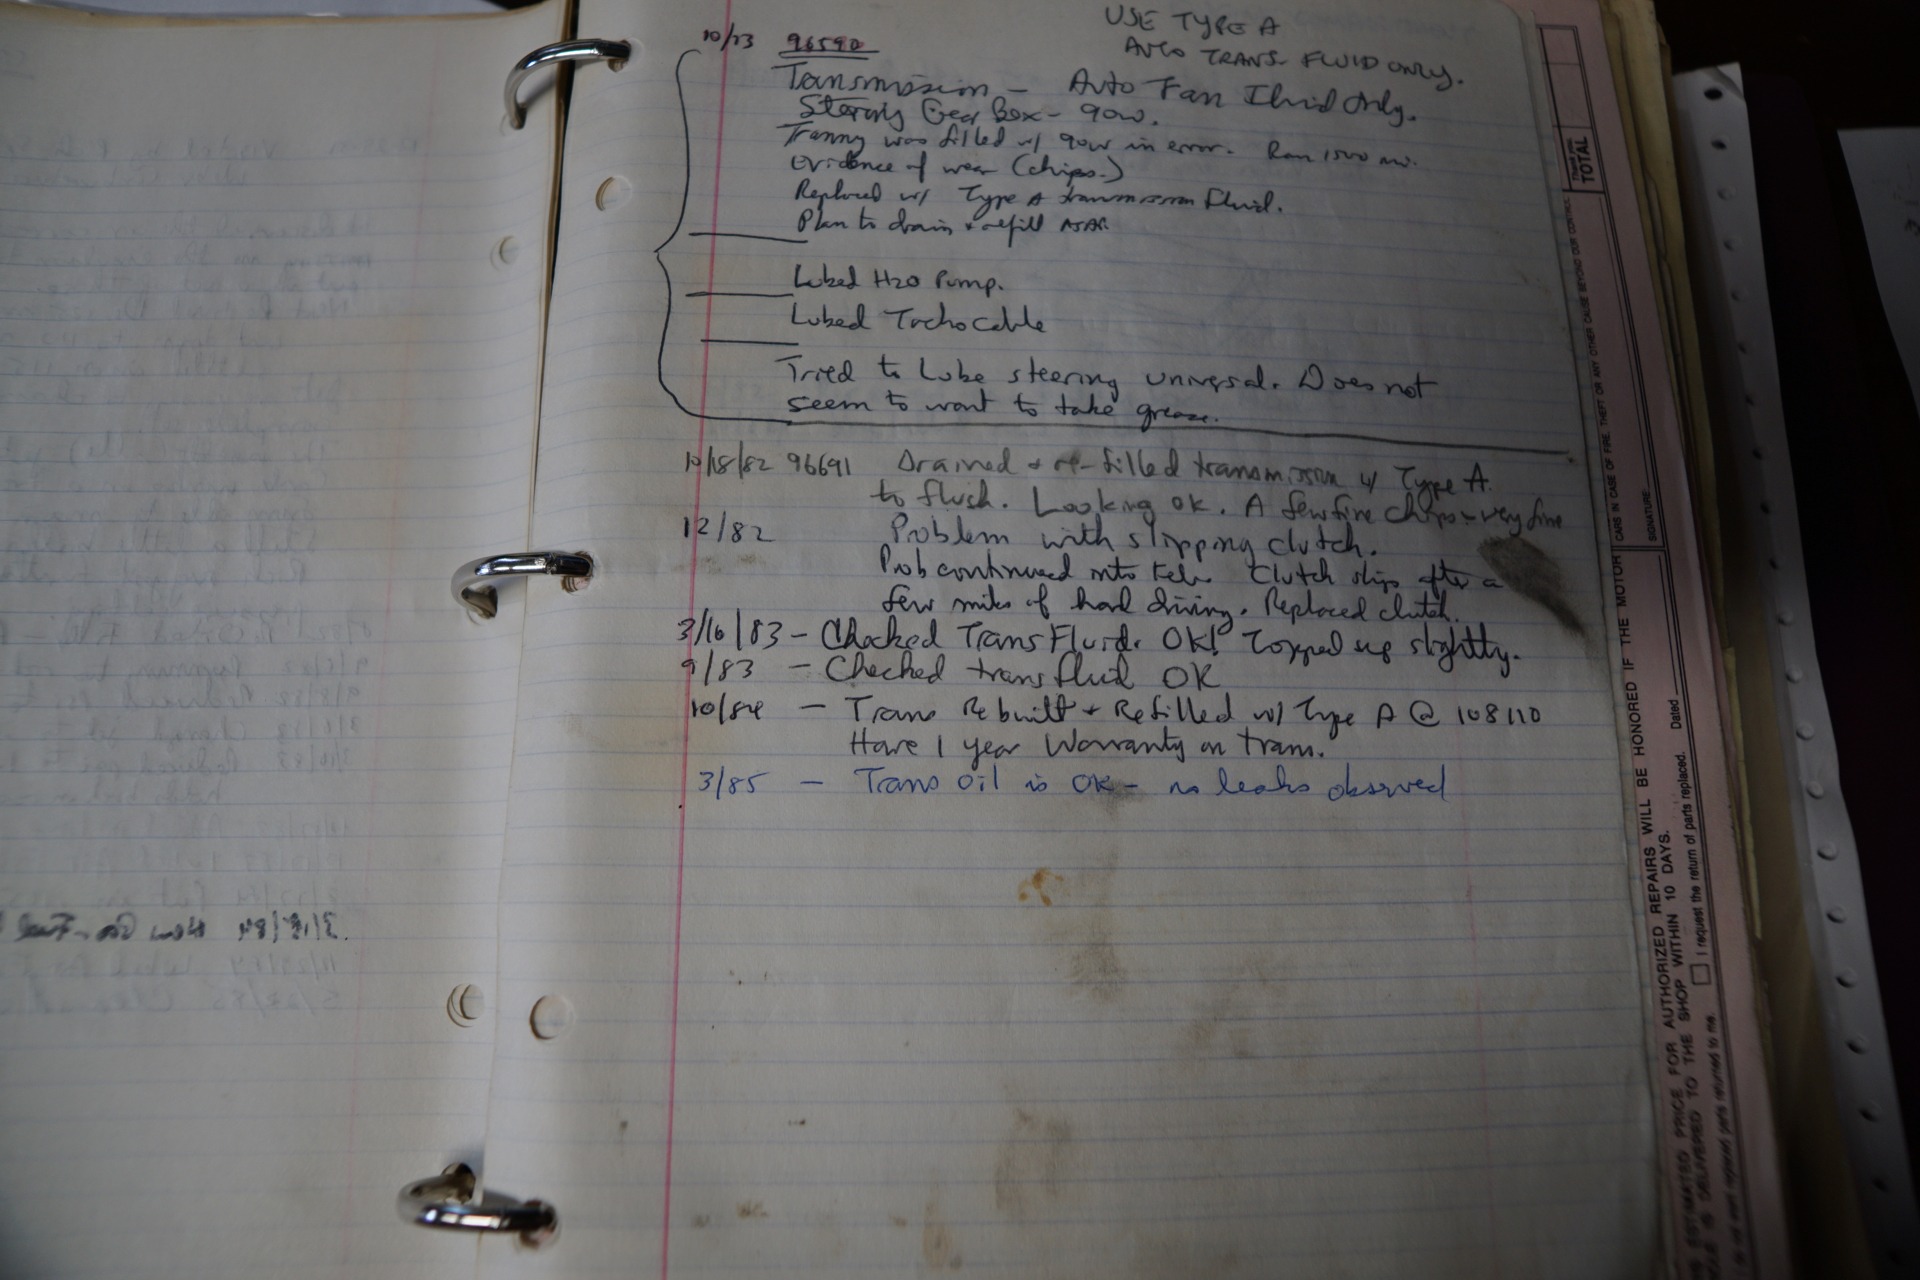 USE TYPE A
AUTO TRANS. FLUID ONLY.
10/13 96590
Transmission - Auto Tran Fluid Only.
Steering Gear Box - 90w.
Tranny was filled w/ 90w in error. Ran 1500 mi.
Evidence of wear (chips.)
Replaced w/ Type A transmission Fluid.
Plan to drain + refill ASAP.
Lubed H2O Pump.
Lubed Tacho Cable
Tried to Lube steering universal. Does not
seem to want to take grease.
10/18/82 96691 Drained + re-filled transmission w/ Type A
to flush. Looking OK. A few fine chips - very fine
12/82 Problem with slipping clutch.
Prob continued into Feb. Clutch slips after a
few miles of hard driving. Replaced clutch.
3/16/83 - Checked Trans Fluid. OK! Topped up slightly.
9/83 - Checked trans fluid OK
10/84 - Trans Rebuilt + Refilled w/ Type A @ 108110
Have 1 year Warranty on trans.
3/85 - Trans Oil is OK - no leaks observed
TOTAL
CARS IN CASE OF FIRE, THEFT OR ANY OTHER CAUSE BEYOND OUR CONTROL
SIGNATURE
BE HONORED IF THE MOTOR
Dated
AUTHORIZED REPAIRS WILL
SHOP WITHIN 10 DAYS.
I request the return of parts replaced.
ESTIMATED PRICE FOR
IS DELIVERED TO THE
parts returned to me.